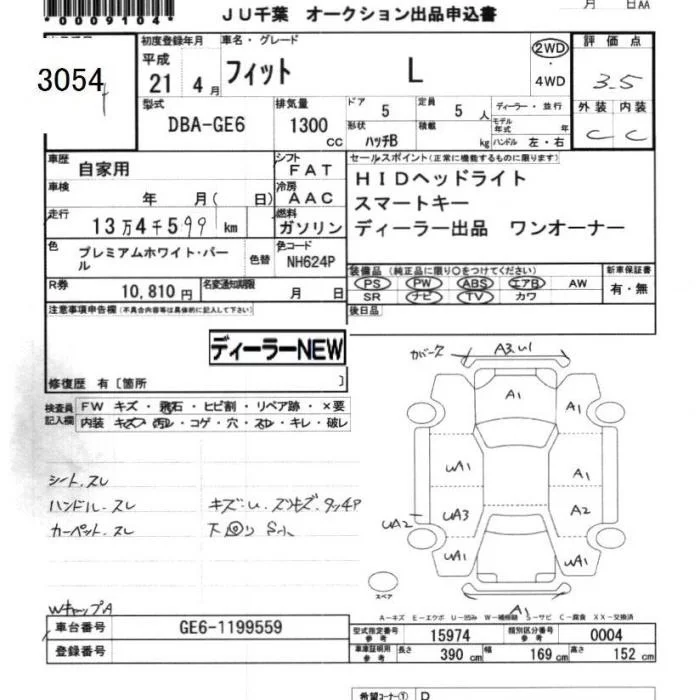 *0009104*
月 日AA
JU千葉 オークション出品申込書
3054
初度登録年月 車名・グレード 評価点
平成 21 4月 フィット L 2WD・4WD 3.5
外装 内装
C C
型式 排気量 ドア 5 定員 5人 ディーラー・並行
DBA-GE6 1300cc 形状 ハッチB 積載 kg モデル年式 年
ハンドル 左・右
車歴 自家用 シフト FAT セールスポイント(正常に機能するものに限ります)
車検 年 月( 日) 冷房 AAC HIDヘッドライト
走行 13万4千599km 燃料 ガソリン スマートキー
ディーラー出品 ワンオーナー
色 プレミアムホワイト・パール 色替 色コード NH624P
装備品(純正品に限り〇をつけてください) 新車保証書
PS PW ABS エアB AW 有・無
SR ナビ TV カワ
R券 10,810円 名変通知期限 月 日
注意事項申告欄(不具合内容等は具体的に記入して下さい) 後日品
ディーラーNEW
修復歴 有〔箇所 〕
検査員記入欄 FW キズ・飛石・ヒビ割・リペア跡・×要
内装 キズ・汚レ・コゲ・穴・スレ・キレ・破レ
A3
A1
A1
UA1
A1
UA3
A2
UA2
UA1
UA1
A1
シート.スレ
ハンドル.スレ
カーペット.スレ
下回り
スペア
WキャップA
A-キズ E-エクボ U-凹み W-補修跡 S-サビ C-腐食 XX-交換済
車台番号 GE6-1199559
登録番号
型式指定番号 参考 15974 類別区分番号 参考 0004
車庫証明用 参考 長さ 390cm 幅 169cm 高さ 152cm
希望コーナー① D